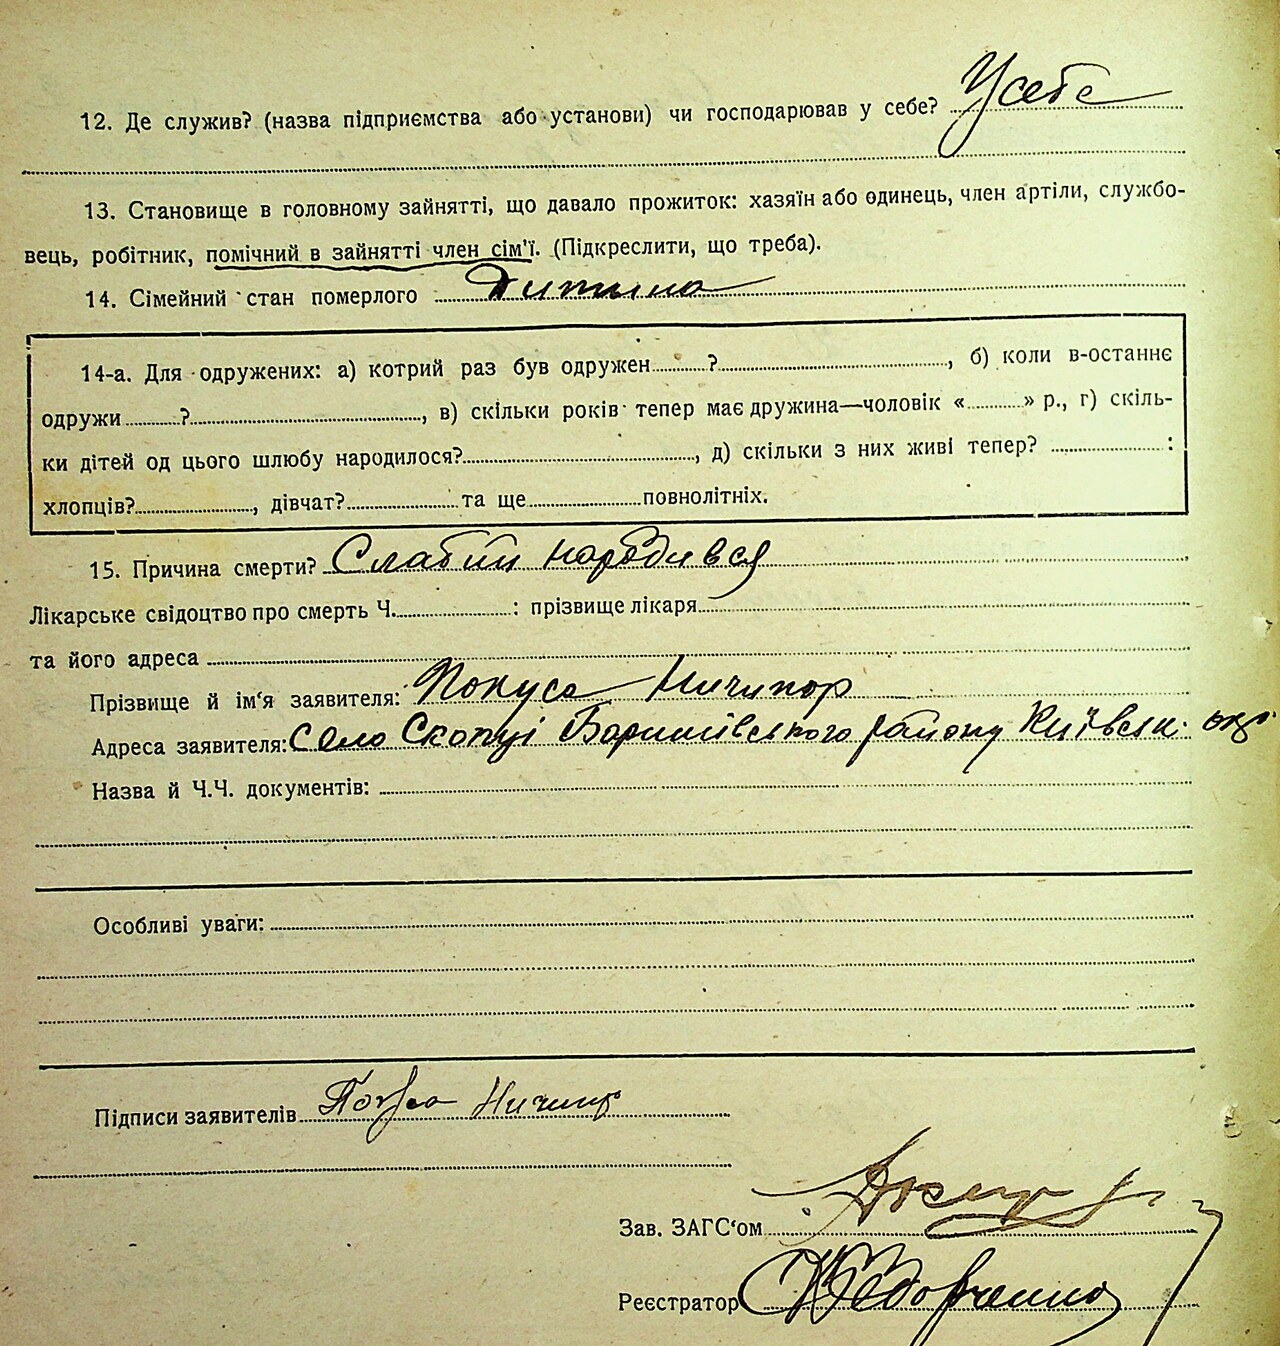 12. Де служив? (назва підприємства або установи) чи господарював у себе? У себе
13. Становище в головному зайнятті, що давало прожиток: хазяїн або одинець, член артіли, службо-
вець, робітник, помічний в зайнятті член сім'ї. (Підкреслити, що треба).
14. Сімейний стан померлого Дитина
14-а. Для одружених: а) котрий раз був одружен ........?........, б) коли в-останнє
одружи ........?........, в) скільки років тепер має дружина—чоловік «........» р., г) скіль-
ки дітей од цього шлюбу народилося? ........, д) скільки з них живі тепер? ........:
хлопців? ........, дівчат? ........ та ще ........ повнолітніх.
15. Причина смерти? Слабий народився
Лікарське свідоцтво про смерть Ч. ........: прізвище лікаря
та його адреса
Прізвище й ім'я заявителя: Покуса Ничипор
Адреса заявителя: Село Скопці Баришівського району Київськ. обл
Назва й Ч.Ч. документів:
Особливі уваги:
Підписи заявителів Покуса Ничипор
Зав. ЗАГС'ом
Реєстратор